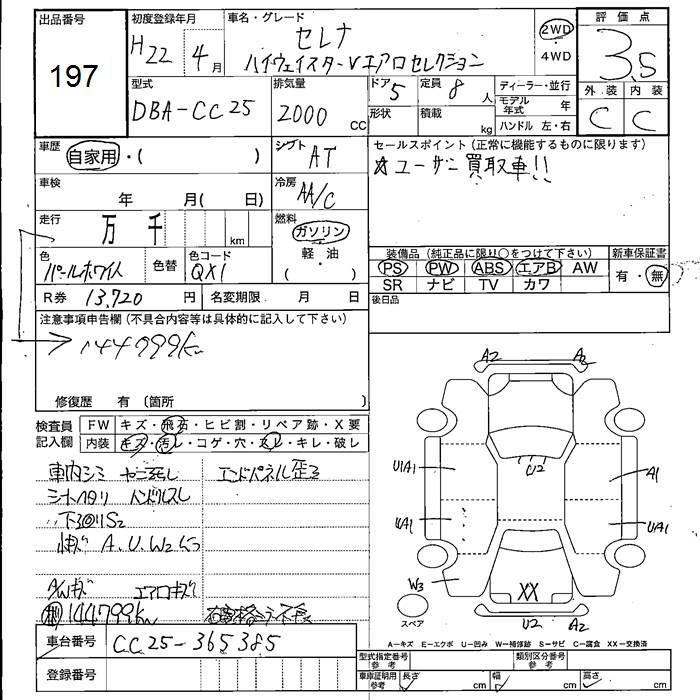 出品番号
197
初度登録年月
H22年 4月
車名・グレード
セレナ
ハイウェイスターVエアロセレクション
2WD
・
4WD
評価点
3.5
外装 内装
C C
型式
DBA-CC25
排気量
2000 cc
ドア 5
形状
定員 8人
積載 kg
ディーラー・並行
モデル年式 年
ハンドル 左・右
車歴
自家用・( )
シフト
AT
セールスポイント(正常に機能するものに限ります)
☆ユーザー買取車!!
車検
年 月( 日)
冷房
AA/C
走行
万 千 km
燃料
ガソリン
・
軽・油
( )
色
パールホワイト
色替
色コード
QX1
装備品(純正品に限り○をつけて下さい)
PS PW ABS エアB AW
SR ナビ TV カワ
新車保証書
有・無
R券 13,720 円
名変期限 月 日
後日品
注意事項申告欄(不具合内容等は具体的に記入して下さい)
144799km
修復歴 有(箇所 )
検査員
記入欄
FW キズ・飛石・ヒビ割・リペア跡・X要
内装 キズ・汚レ・コゲ・穴・スレ・キレ・破レ
車内シミ
エンドパネル歪ミ
シートヘタリ ハンドルスレ
下廻りS2
A.U.W2
A/Wキズ エアロキズ
144799km
車台番号 CC25-365385
登録番号
A2 A2
U2
U1A1
A1
U1A1
U1A1
W3
XX
U2 A2
スペア
A-キズ E-エクボ U-凹み W-補修跡 S-サビ C-腐食 XX-交換済
型式指定番号 参考
類別区分番号 参考
車庫証明用 参考
長さ cm 幅 cm 高さ cm